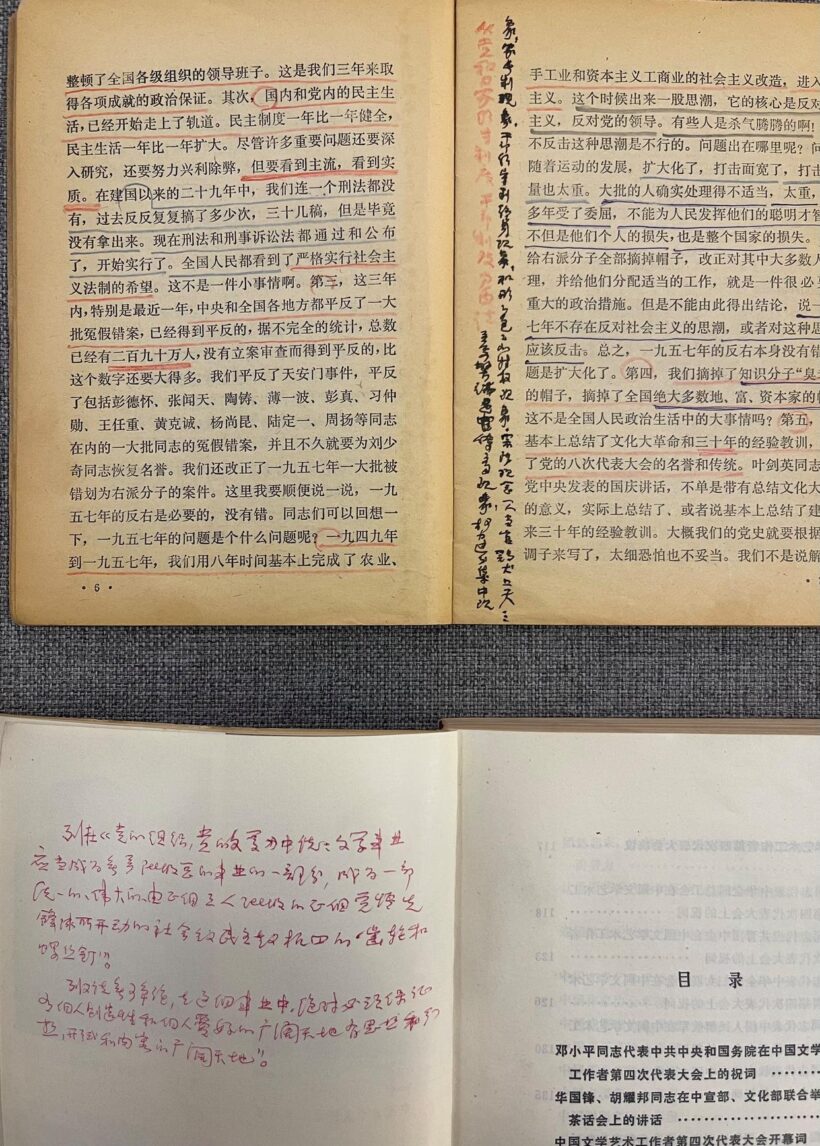 整顿了全国各级组织的领导班子。这是我们三年来取
得各项成就的政治保证。其次,国内和党内的民主生
活,已经开始走上了轨道。民主制度一年比一年健全,
民主生活一年比一年扩大。尽管许多重要问题还要深
入研究,还要努力兴利除弊,但要看到主流,看到实
质。在建国以来的二十九年中,我们连一个刑法都没
有,过去反反复复搞了多少次,三十几稿,但是毕竟
没有拿出来。现在刑法和刑事诉讼法都通过和公布
了,开始实行了。全国人民都看到了严格实行社会主
义法制的希望。这不是一件小事情啊。第三,这三年
内,特别是最近一年,中央和全国各地方都平反了一大
批冤假错案,已经得到平反的,据不完全的统计,总数
已经有二百九十万人,没有立案审查而得到平反的,比
这个数字还要大得多。我们平反了天安门事件,平反
了包括彭德怀、张闻天、陶铸、薄一波、彭真、习仲
勋、王任重、黄克诚、杨尚昆、陆定一、周扬等同志
在内的一大批同志的冤假错案,并且不久就要为刘少
奇同志恢复名誉。我们还改正了一九五七年一大批被
错划为右派分子的案件。这里我要顺便说一说,一九
五七年的反右是必要的,没有错。同志们可以回想一
下,一九五七年的问题是个什么问题呢?一九四九年
到一九五七年,我们用八年时间基本上完成了农业、
· 6 ·
手工业和资本主义工商业的社会主义改造,进入
主义。这个时候出来一股思潮,它的核心是反对
主义,反对党的领导。有些人是杀气腾腾的啊!
不反击这种思潮是不行的。问题出在哪里呢?问
随着运动的发展,扩大化了,打击面宽了,打击
量也太重。大批的人确实处理得不适当,太重,
多年受了委屈,不能为人民发挥他们的聪明才智
不但是他们个人的损失,也是整个国家的损失。
给右派分子全部摘掉帽子,改正对其中大多数人
理,并给他们分配适当的工作,就是一个很必
重大的政治措施。但是不能由此得出结论,说一
七年不存在反对社会主义的思潮,或者对这种思
应该反击。总之,一九五七年的反右本身没有错
题是扩大化了。第四,我们摘掉了知识分子“臭老
的帽子,摘掉了全国绝大多数地、富、资本家的帽
这不是全国人民政治生活中的大事情吗?第五,
基本上总结了文化大革命和三十年的经验教训,
了党的八次代表大会的名誉和传统。叶剑英同志
党中央发表的国庆讲话,不单是带有总结文化大
的意义,实际上总结了、或者说基本上总结了建
来三十年的经验教训。大概我们的党史就要根据
调子来写了,太细恐怕也不妥当。我们不是说解
列在《党的组织,党的文学》中说:文学事业
应当成为无产阶级总的事业的一部分,成为一部
统一的、伟大的由整个工人阶级的整个觉悟先
锋队所开动的社会主义民主主义机器的“齿轮和
螺丝钉”。
列又说无可争论,在这个事业中,绝对必须保证
个人创造性和个人爱好的广阔天地,有思想和幻
想,形式和内容的广阔天地”。
目 录
邓小平同志代表中共中央和国务院在中国文学
工作者第四次代表大会上的祝词
华国锋、胡耀邦同志在中宣部、文化部联合举
茶话会上的讲话
中国文学艺术工作者第四次代表大会开幕词